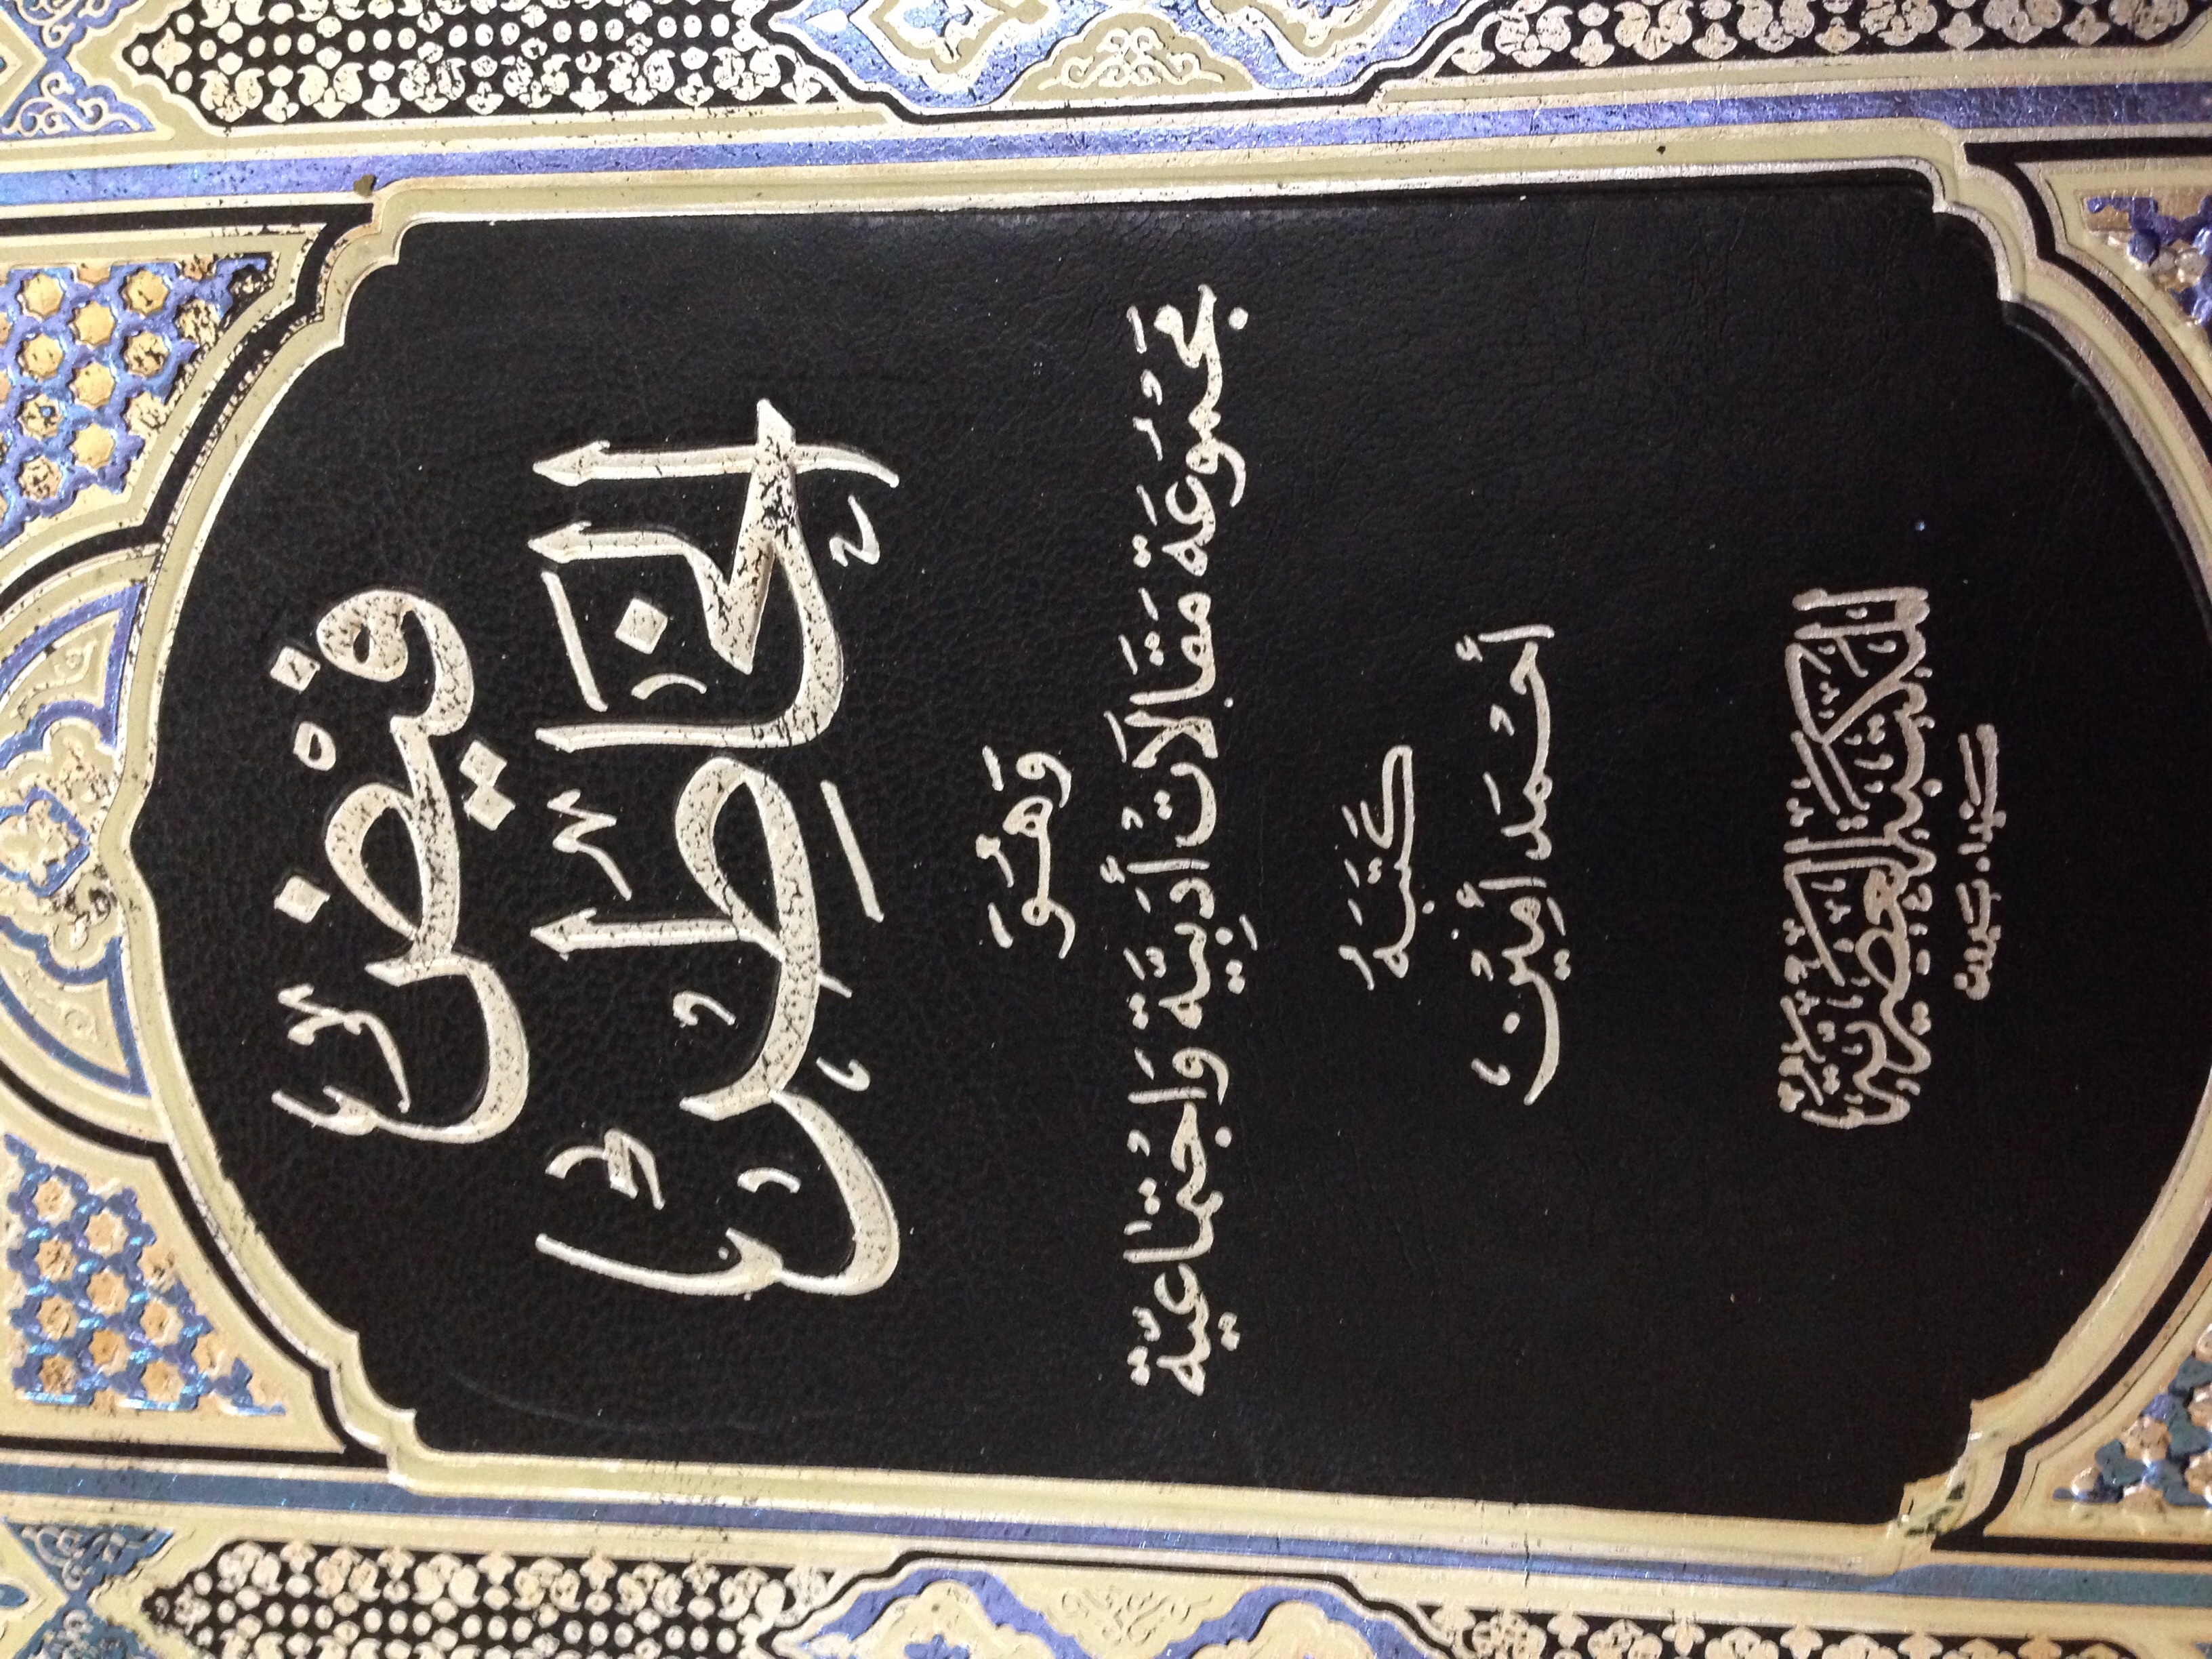 فَيْضُ
الخَاطِر
وَهُوَ
مَجْمُوعَة مَقَالَاتْ أَدَبِيَّة وَاجْتمَاعيَّة
كَتَبَهُ
أَحْمَد أَمِيْن
المكتبة العصرية
صيدا - بيروت